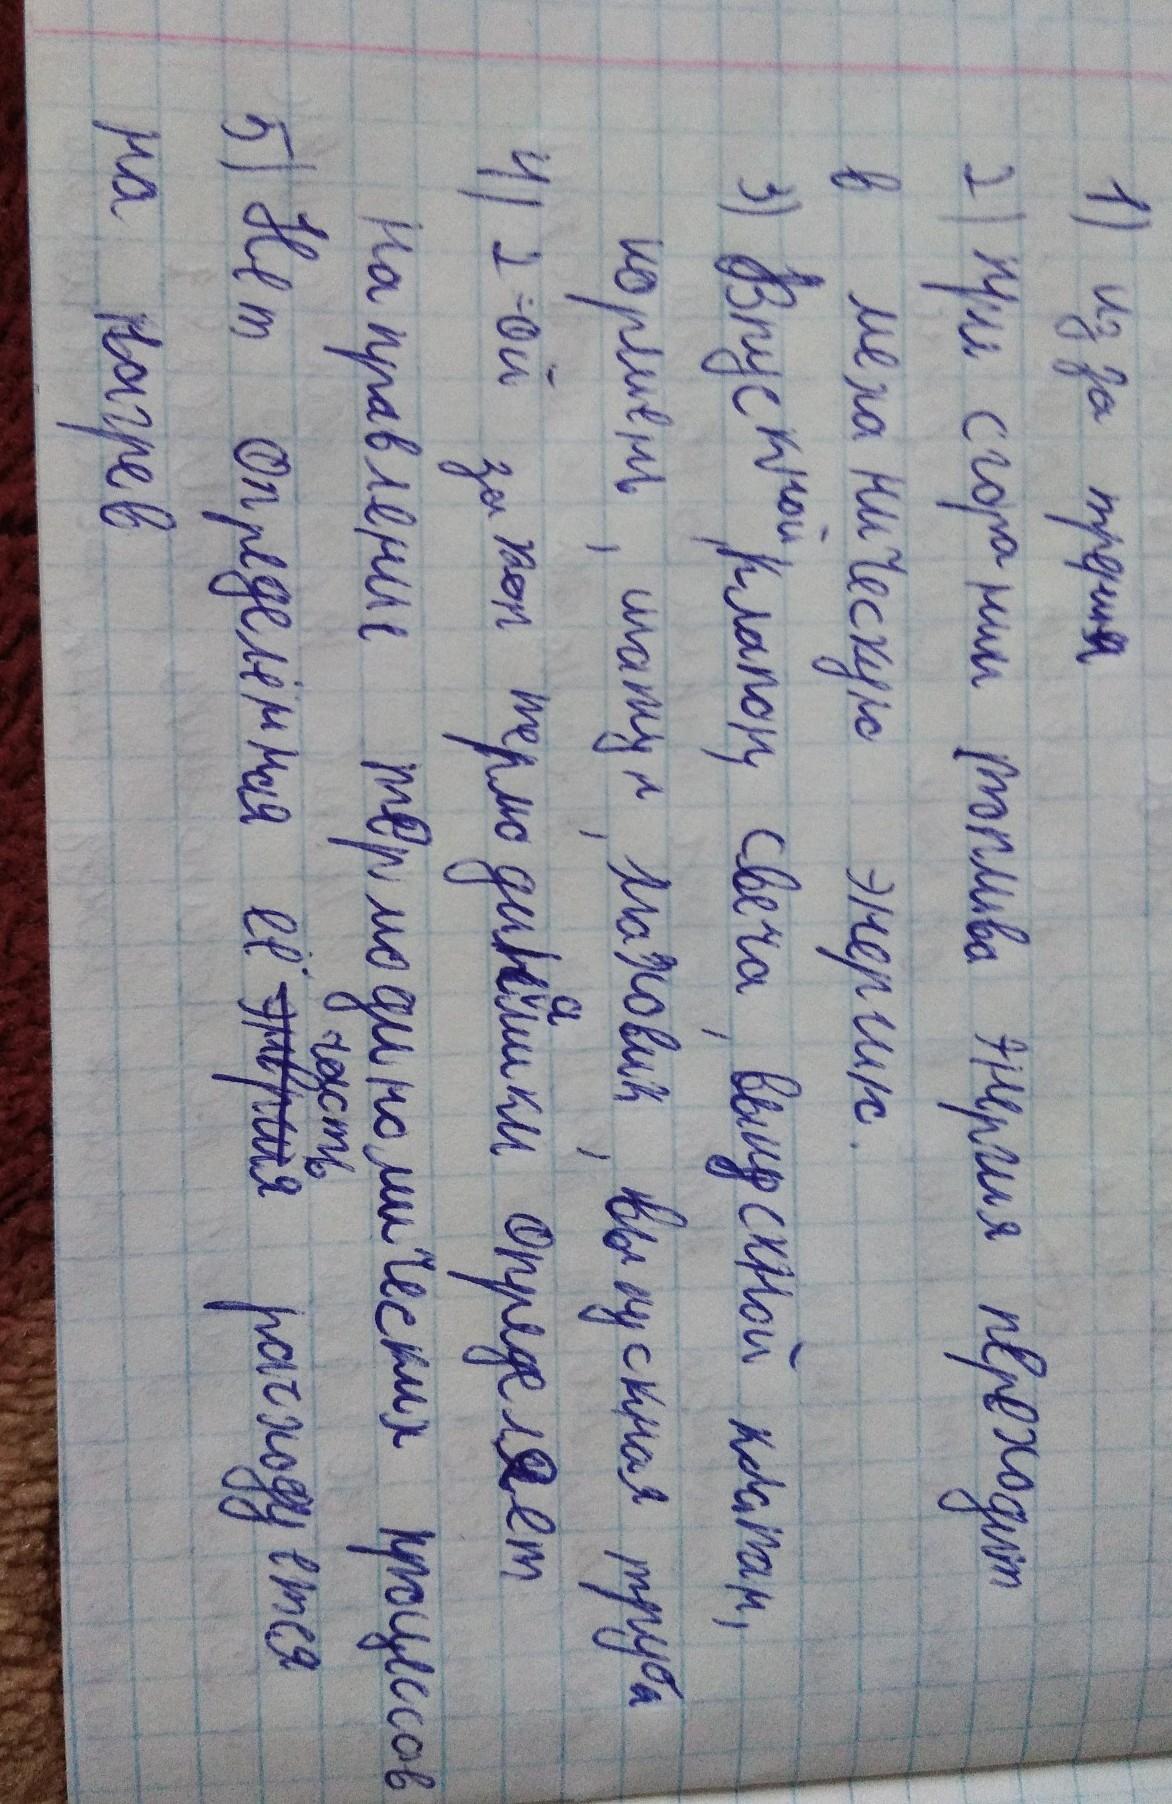 1) из за трения
2) при сгорании топлива энергия переходит
в механическую энергию.
3) Впускной клапон, свеча, выпускной клапан,
поршень, шатун, маховик, выпускная труба
4) 2-ой закон термодинамики определяет
направление термодиномических процессов
5) Нет Определённая её часть расходуется
на нагрев